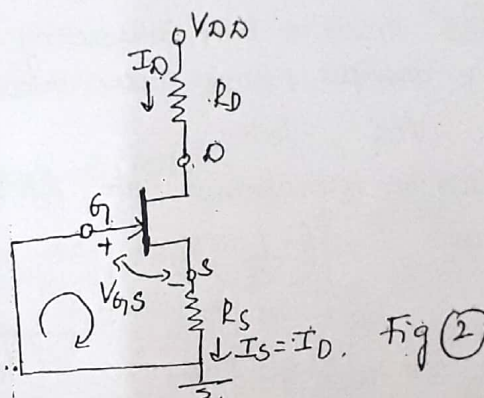 VDD
ID
↓
RD
D
G
+
VGS
-
S
RS
↓ IS = ID.
Fig ②